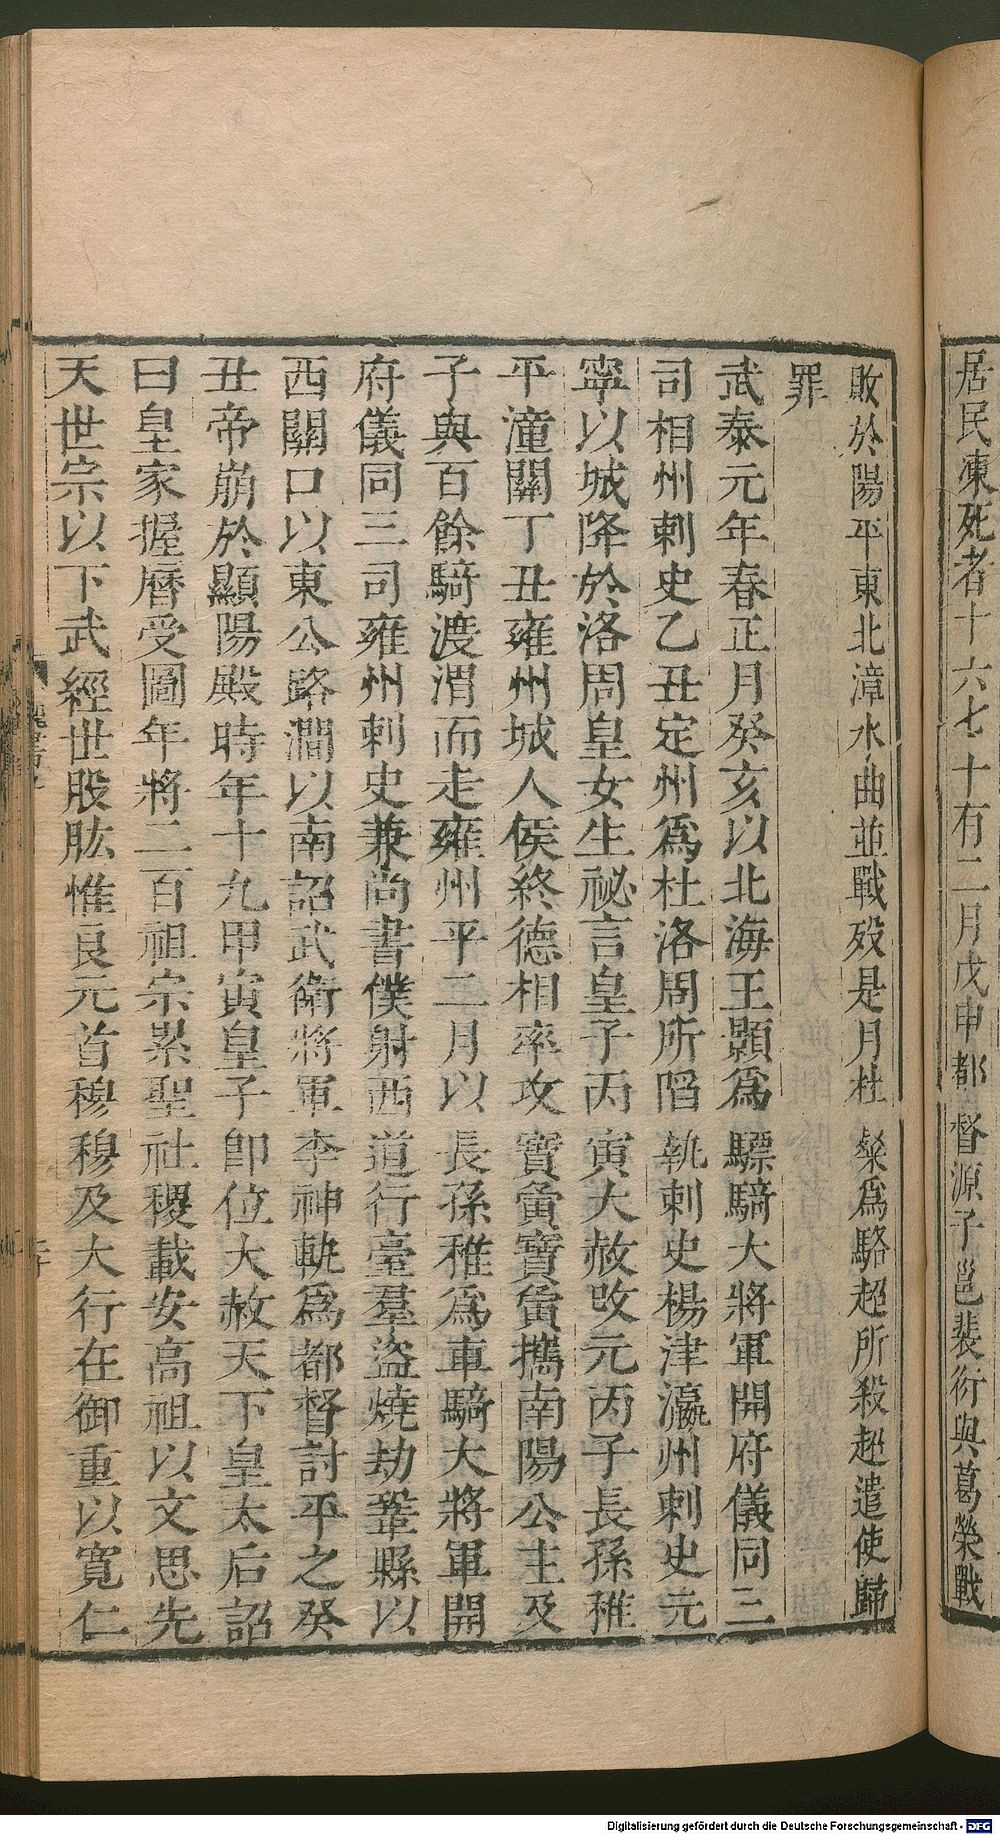 居民凍死者十六七十有二月戊申都督源子邕裴衍與葛榮戰
敗於陽平東北漳水曲並戰歿是月杜粲爲駱超所殺超遣使歸
罪
武泰元年春正月癸亥以北海王顥爲驃騎大將軍開府儀同三
司相州刺史乙丑定州爲杜洛周所陷執刺史楊津瀛州刺史元
寧以城降於洛周皇女生祕言皇子丙寅大赦改元丙子長孫稚
平潼關丁丑雍州城人侯終德相率攻寶夤寶夤攜南陽公主及
子與百餘騎渡渭而走雍州平二月以長孫稚爲車騎大將軍開
府儀同三司雍州刺史兼尚書僕射西道行臺羣盜燒劫鞏縣以
西關口以東公路澗以南詔武衛將軍李神軌爲都督討平之癸
丑帝崩於顯陽殿時年十九甲寅皇子卽位大赦天下皇太后詔
曰皇家握曆受圖年將二百祖宗累聖社稷載安高祖以文思先
天世宗以下武經世股肱惟良元首穆穆及大行在御重以寬仁
Digitalisierung gefördert durch die Deutsche Forschungsgemeinschaft - DFG